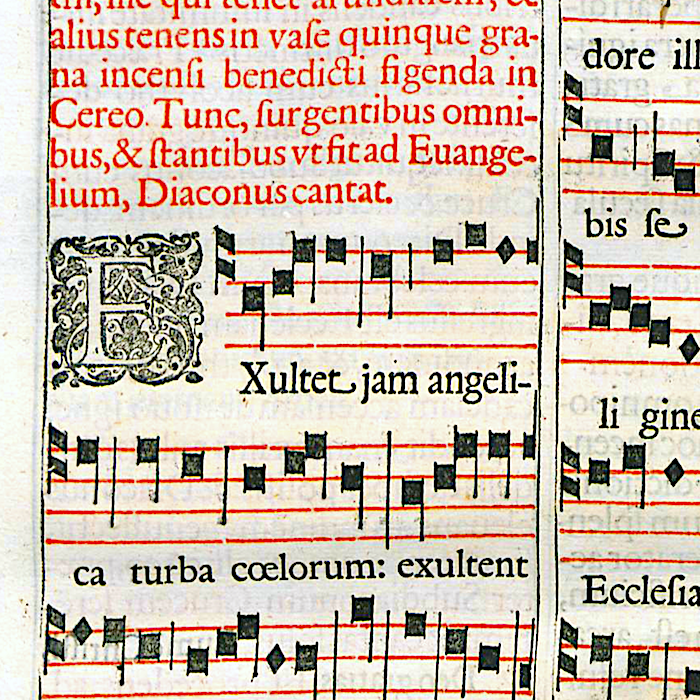 alius tenens in vaſe quinque gra-
na incenſi benedicti figenda in
Cereo. Tunc, ſurgentibus omni-
bus, & ſtantibus vt fit ad Euange-
lium, Diaconus cantat.
EXultet jam angeli-
ca turba cœlorum: exultent
dore ill
bis ſe
li gine
Eccleſia